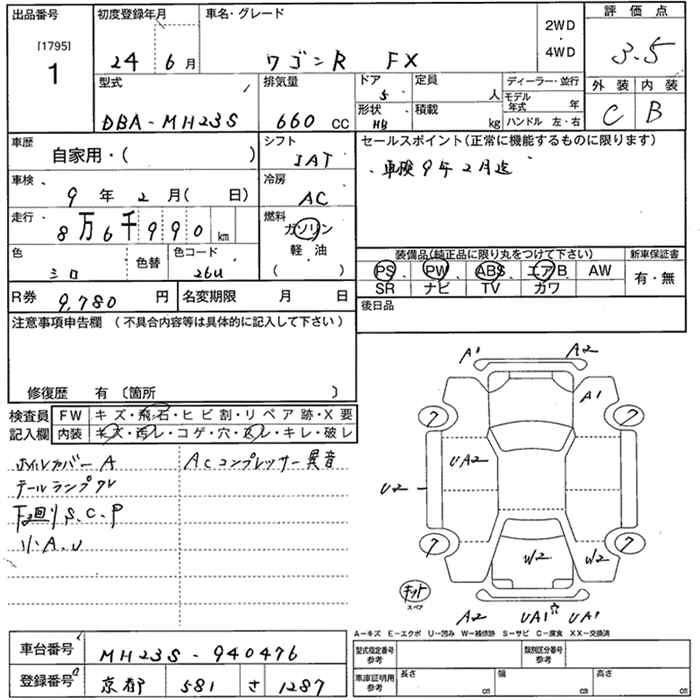 出品番号
[1795]
1
初度登録年月
24 6月
車名・グレード
ワゴンR FX
2WD
・
4WD
評価点
3.5
外装 内装
C B
型式
DBA-MH23S
排気量
660 CC
ドア
5
定員
人
形状
HB
積載
kg
ディーラー・並行
モデル年式 年
ハンドル 左・右
車歴
自家用・( )
シフト
IAT
セールスポイント(正常に機能するものに限ります)
車検9年2月迄
車検
9年2月( 日)
冷房
AC
走行
8万6千990 km
燃料
ガソリン
軽・油
( )
色
シロ
色替
色コード
26U
装備品(純正品に限り丸をつけて下さい)
PS PW ABS エアB AW
SR ナビ TV カワ
新車保証書
有・無
R券 9,780 円
名変期限 月 日
後日品
注意事項申告欄 (不具合内容等は具体的に記入して下さい)
修復歴 有 〔箇所 〕
検査員記入欄
FW キズ・飛石・ヒビ割・リペア跡・X要
内装 キズ・汚レ・コゲ・穴・スレ・キレ・破レ
ホイルカバーA
ACコンプレッサー異音
テールランプワレ
下回りS.C.P
小A.U
A1 A2
A1
7 7
UA2
U2
7 7
W2 W2
キット
スペア
A2 UA1 UA1
A-キズ E-エクボ U-凹み W-補修跡 S-サビ C-腐食 XX-交換済
車台番号 MH23S-940476
登録番号 京都 581 さ 1287
型式指定番号
参考
類別区分番号
参考
車庫証明用
参考
長さ cm
幅 cm
高さ cm